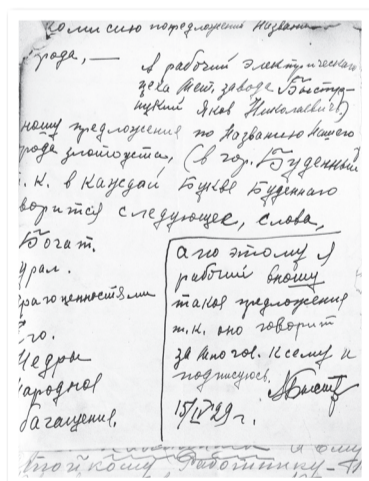 комисию попредложению Названи
рода, —
А рабочий электрического
цеха мет. завода Быстру-
Яков Николаевич
ношу предложения по Названию нашего
рода златоуста, (в гор. Буденный
. К. в каждой Букве Буденнаго
воритса следующее, слова,
Богат.
Урал.
рагоценностями
го.
Недры
ародное
багащения.
а по этому я
рабочий вношу
такоя предложения
т.к. оно говорит
за много. К сему и
подписуюсь.
15/IV 29 г.